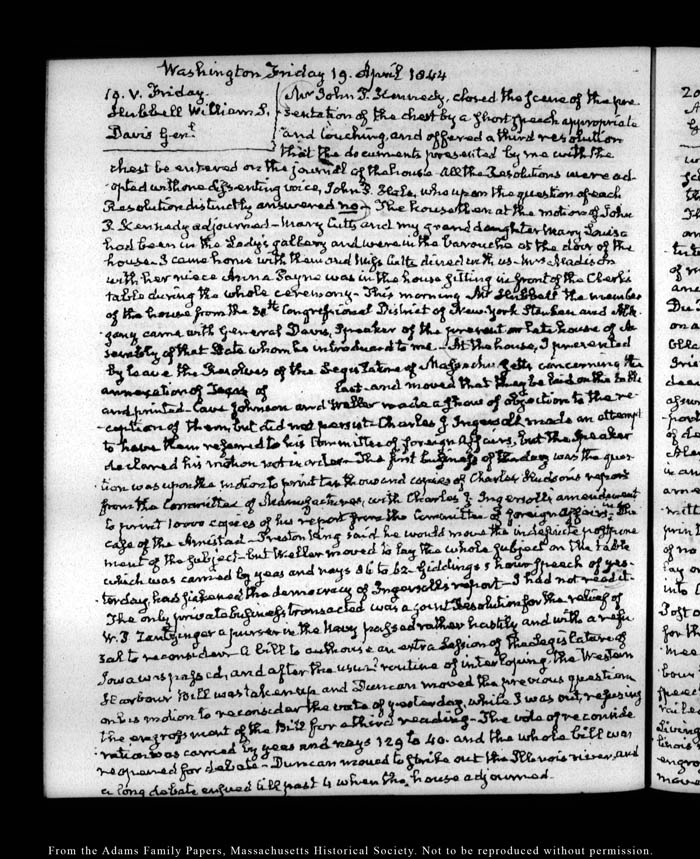 Washington Friday 19. April 1844
19. V. Friday.
Hubbell William S.
Davis Genl
Mr John P. Kennedy, closed the scene of the pre-
sentation of the chest by a short speech appropriate
and touching, and offered a third resolution
that the documents presented by me with the
chest be entered on the journal of the house. All the Resolutions were ad-
opted with one dissenting voice, John P. Hale, who upon the question of each
Resolution distinctly answered no. The house then at the motion of John
P. Kennedy adjourned — Mary Cutts and my grand daughter Mary Louisa
had been in the Lady's gallery and were in the barouche at the door of the
house. I came home with them and Miss Cutts dined with us — Mrs Madison
with her niece Anna Payne was in the house sitting in front of the Clerk's
table during the whole ceremony — This morning Mr Hubbell the member
of the house from the 30th Congressional District of New-York Steuben and Alle-
gany came with General Davis, Speaker of the present or late house of As-
sembly of that State whom he introduced to me — At the house, I presented
by leave the Resolves of the Legislature of Massachusetts concerning the
annexation of Texas of last and moved that they be laid on the table
and printed — Cave Johnson and Weller made a show of objection to the re-
ception of them, but did not persist — Charles J. Ingersoll made an attempt
to have them referred to his Committee of foreign Affairs, but the Speaker
declared his motion not in order — The first business of the day was the ques-
tion was upon the motion to print ten thousand copies of Charles Hudson's report
from the Committee of Manufactures, with Charles J. Ingersoll's amendment
to print 10000 copies of his report from the Committee of foreign affairs, in the
case of the Amistad — Preston King said he would move the indefinite postpone
ment of the subject — but Weller moved to lay the whole subject on the table
which was carried by yeas and nays 86 to 62 — Giddings's hour speech of yes-
terday, has sickened the democracy of Ingersoll's report — I had not read it.
The only private business transacted was a joint Resolution for the relief of
W. P. Zantzinger a purser in the Navy passed rather hastily and with a refu
sal to reconsider — A bill to authorise an extra Session of the Legislature of
Iowa was passed, and after the usual routine of interloping, the Western
Harbour Bill was taken up and Duncan moved the previous question
on his motion to reconsider the vote of yesterday, while I was out, refusing
the engrossment of the Bill for a third reading — The vote of reconside
ration was carried by yeas and nays 129 to 40. and the whole bill was
reopened for debate — Duncan moved to strike out the Illinois river, and
a long debate ensued till past 4 when the house adjourned.
From the Adams Family Papers, Massachusetts Historical Society. Not to be reproduced without permission.